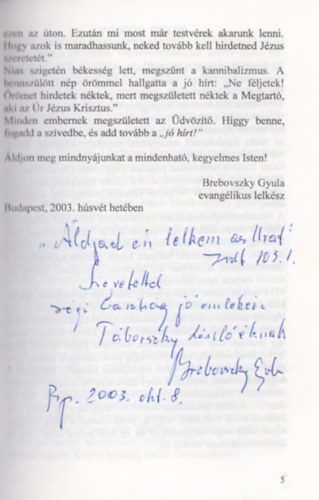 ezen az úton. Ezután mi most már testvérek akarunk lenni.
Hogy azok is maradhassunk, neked tovább kell hirdetned Jézus
szeretetét."
Nias szigetén békesség lett, megszűnt a kannibalizmus. A
bennszülött nép örömmel hallgatta a jó hírt: „Ne féljetek!
Örömet hirdetek néktek, mert megszületett néktek a Megtartó,
aki az Úr Jézus Krisztus."
Minden embernek megszületett az Üdvözítő. Higgy benne,
fogadd a szívedbe, és add tovább a „jó hírt!"
Áldjon meg mindnyájunkat a mindenható, kegyelmes Isten!
Brebovszky Gyula
evangélikus lelkész
Budapest, 2003. húsvét hetében
„Áldjad én lelkem az Urat!"
Zsolt 103.1.
Szeretettel
régi barátság jó emlékére
Táborszky Lászlóéknak
Brebovszky Gyula
Bp. 2003. okt. 8.
5